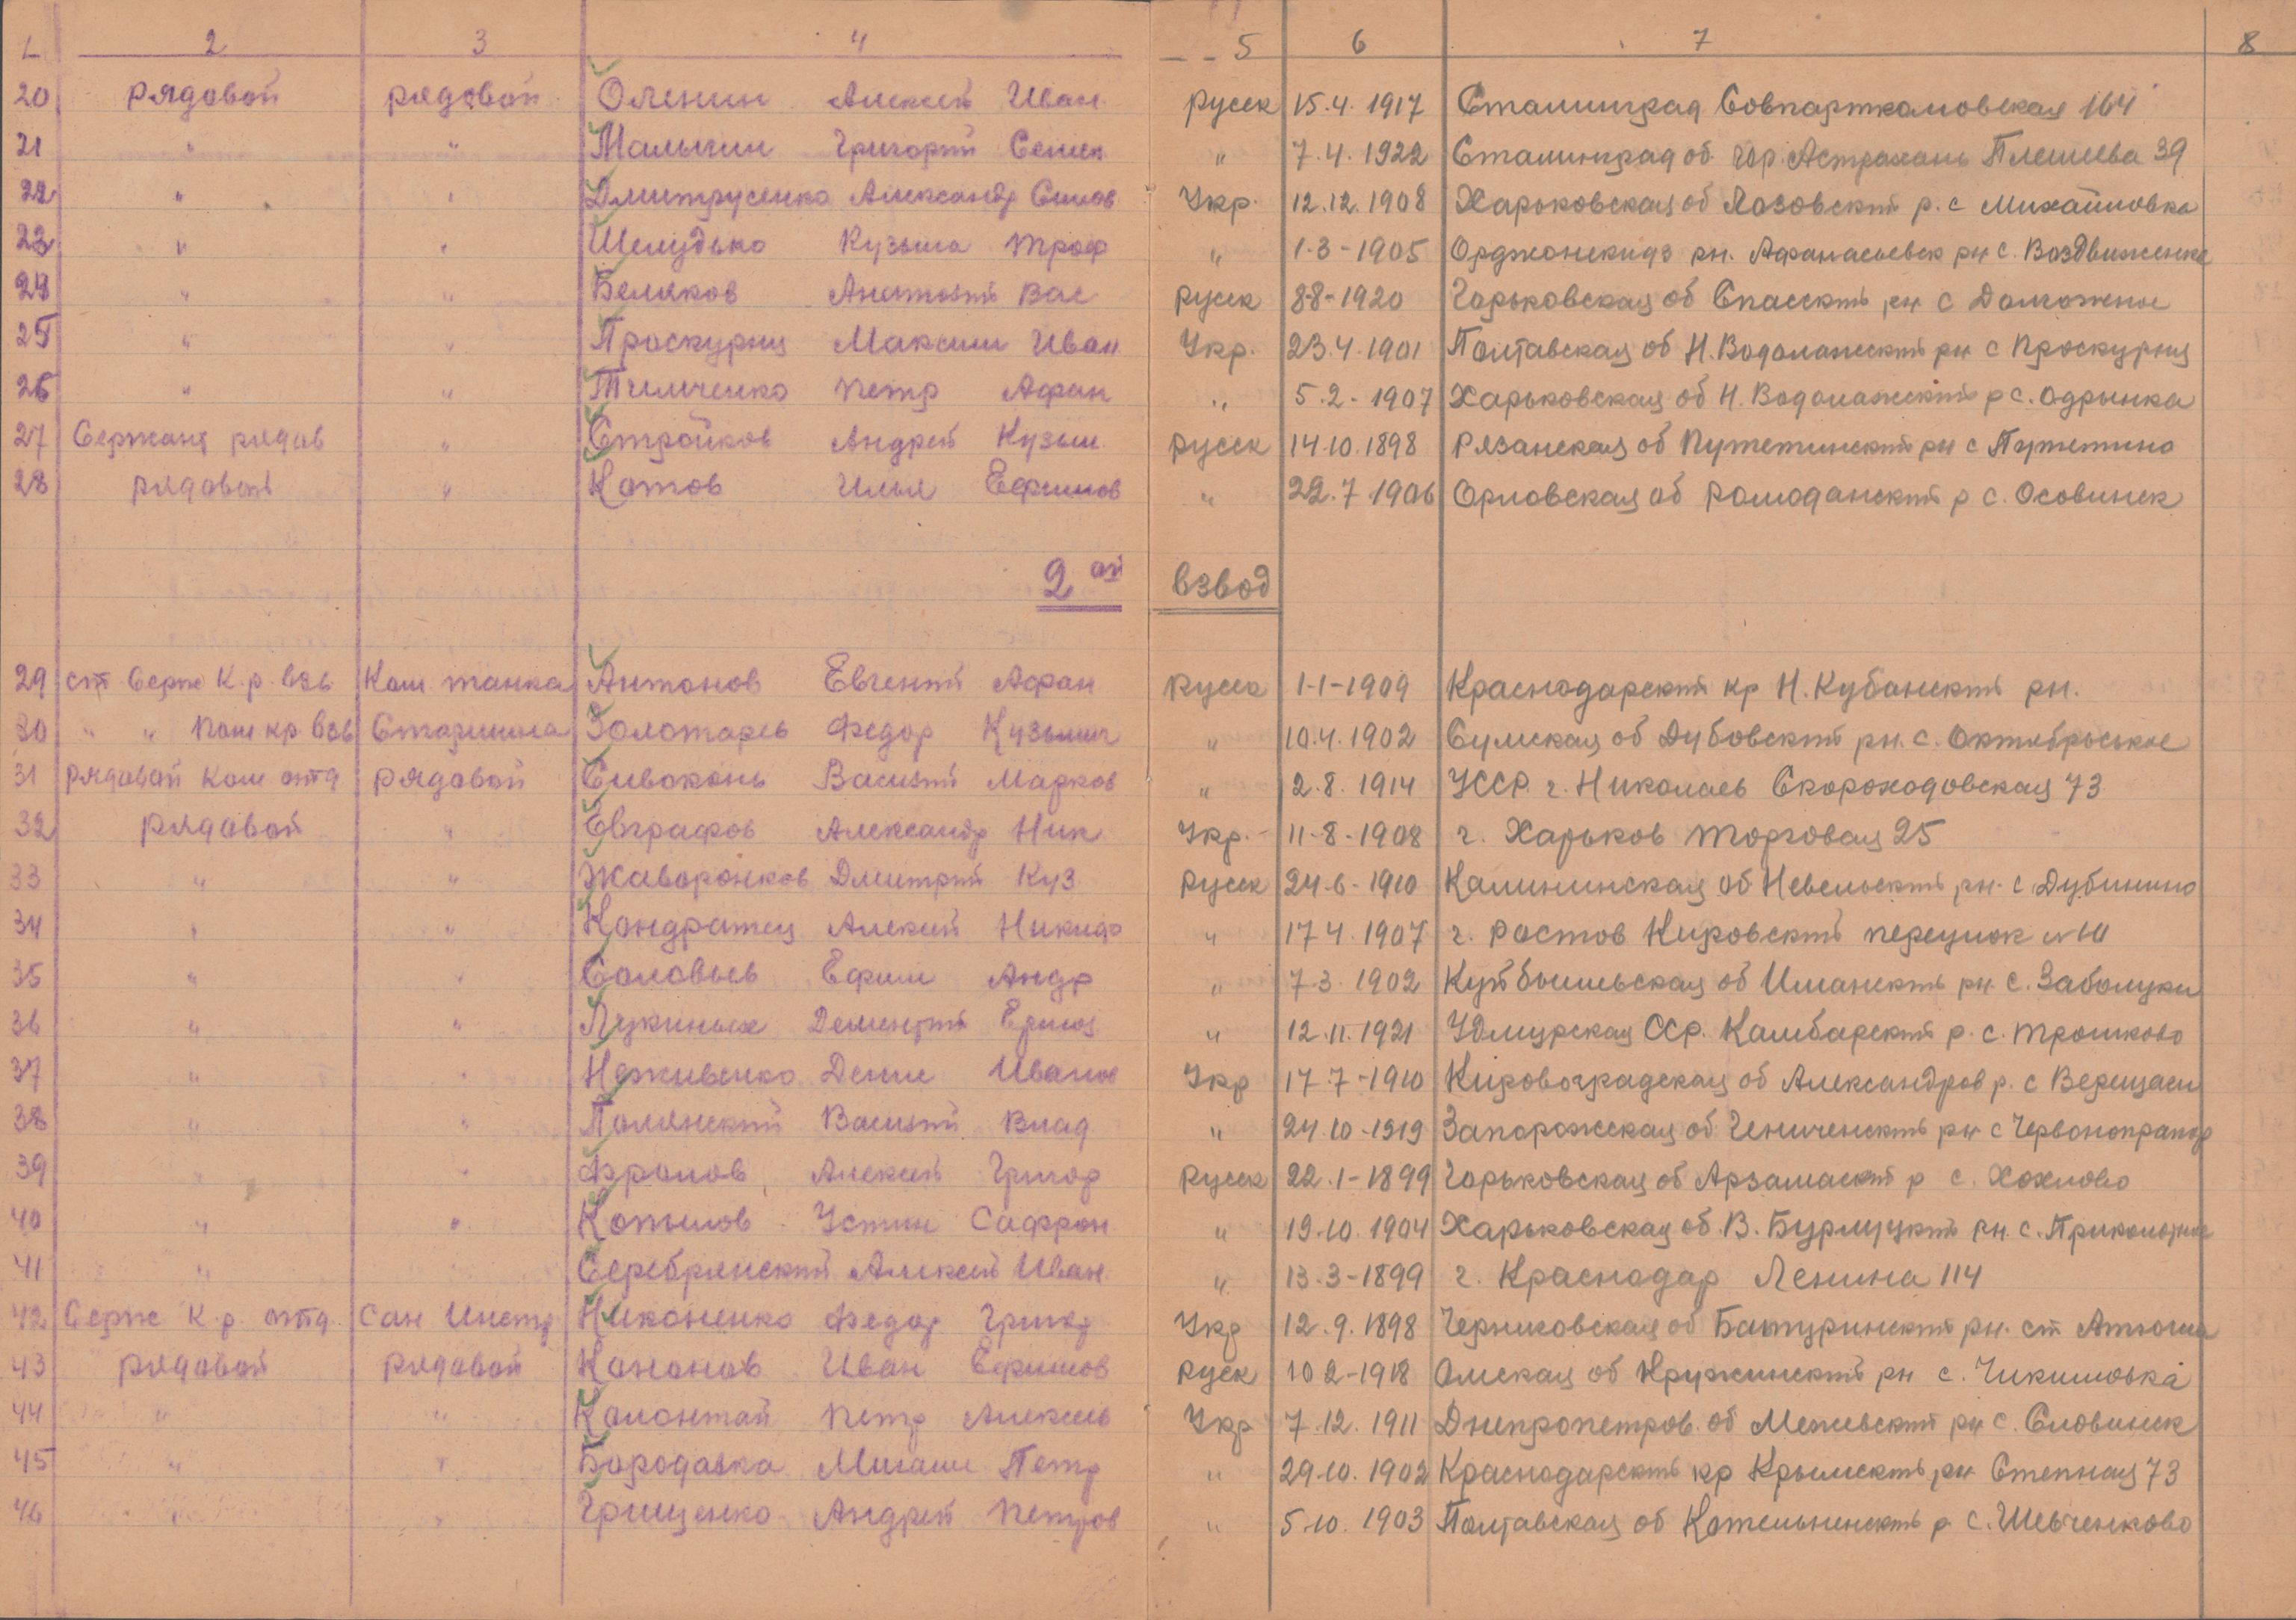 1 2 3 4 5 6 7 8
20 рядовой рядовой Оленин Алексей Иван русск 15.4.1917 Сталинград Совпарткомовская 164
21 " " Малыгин Григорий Семен " 7.4.1922 Сталинград об. гор. Астрахань Плешеева 39
22 " " Дмитрусенко Александр Силов Укр. 12.12.1908 Харьковская об Лозовский р. с Михайловка
23 " " Шелудько Кузьма Троф " 1-3-1905 Орджоникидз рн. Афанасьевск рн с. Воздвиженка
24 " " Беляков Анатолий Вас русск 8-8-1920 Горьковская об Спасский рн с
25 " " Проскурня Максим Иван Укр. 23.4.1901 Полтавская об Н. Водолажский рн с Проскурня
26 " " Тимченко Петр Афан " 5.2.-1907 Харьковская об Н. Водолажский р с. Одрынка
27 Сержант рядов " Стройков Андрей Кузьм русск 14.10.1898 Рязанская об Путятинский рн с Путятино
28 рядовой " Котов Илья Ефимов " 22.7 1906 Орловская об Ромоданский р с. Осовинск
2ой взвод
29 ст Серж К.р. взв Ком танка Антонов Евгений Афан Русск 1-1-1909 Краснодарский кр Н. Кубанский рн.
30 " " Пом кр взв Старшина Золотарев Федор Кузьмич " 10.4.1902 Сумская об Дубовский рн. с. Октябрьское
31 рядовой Ком отд рядовой Сивоконь Василий Марков " 2.8.1914 УССР г. Николаев Скороходовская 73
32 рядовой " Евграфов Александр Ник Укр. 11-8-1908 г. Харьков Торговая 25
33 " " Жаворонков Дмитрий Куз Русск 24-6-1910 Калининская об Невельский рн. с Дубинино
34 " " Кондратец Алексей Никиф " 17 4.1907 г. Ростов Кировский переулок № 10
35 " " Соловьев Ефим Андр " 7-3.1902 Куйбышевская об рн. с. Заболуки
36 " " Лукиных Дементий " 12.11.1921 Удмурская ССр. Камбарский р. с. Трошково
37 " " Неживенко Денис Иванов Укр 17.7-1910 Кировоградская об Александров р. с Верещаки
38 " " Полянский Василий Влад " 24.10-1919 Запорожская об. Гениченский рн с Червонопрапор
39 " " Фролов Алексей Григор Русск 22.1-1899 Горьковская об Арзамаский р с. Хохлово
40 " " Копылов Устин Сафрон " 19.10.1904 Харьковская об. В. Бурлуцкий рн. с. Приколотное
41 " " Серебрянский Алексей Иван. " 13.3-1899 г. Краснодар Ленина 114
42 Серж К.р. отд. Сан Инстр Никоненко Федор Григор Укр 12.9.1898 Черниковская об Батуринский рн. ст
43 рядовой рядовой Кононов Иван Ефимов Руск 10 2-1918 Омская об рн с. Чикишовка
44 " " Колонтай Петр Алексеев Укр 7.12.1911 Днепропетров. об Межевский рн с. Словинск
45 " " Бородавка Михаил Петр " 29.10.1902 Краснодарский кр Крымский рн Степная 73
46 " " Грищенко Андрей Петров " 5.10.1903 Полтавская об р с. Шевченково